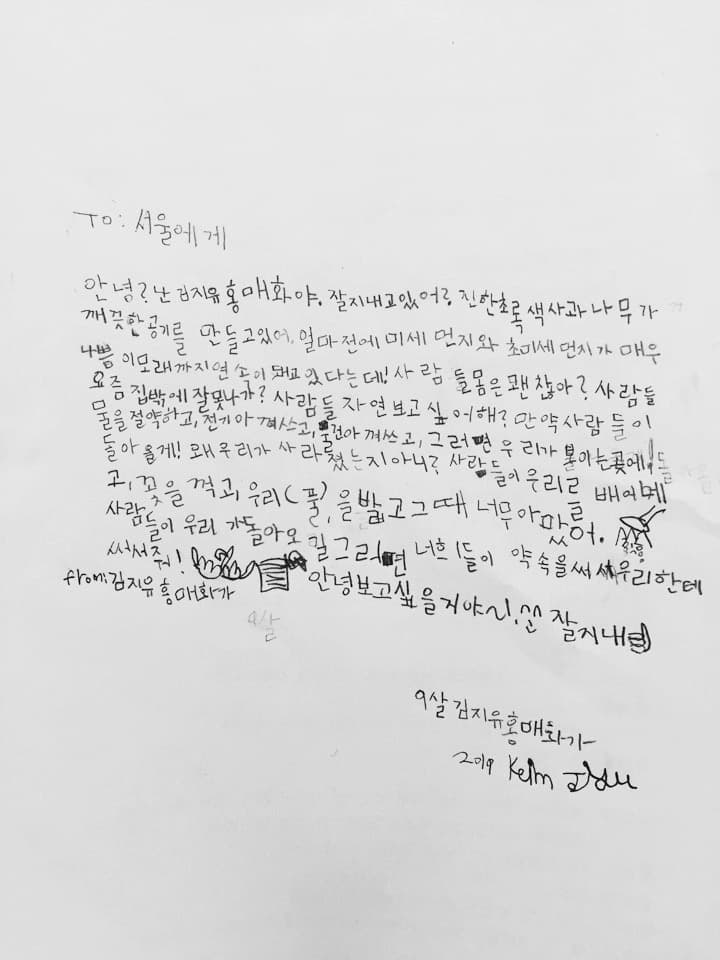 To: 서울에게
안녕? 난 김지유홍매화야. 잘지내고있어? 진한초록색사과나무가
깨끗한공기를 만들고있어, 얼마전에 미세먼지와 초미세먼지가 매우
나쁨이모래까지연속이돼고있다는데! 사람들몸은괜찮아? 사람들
요즘 집밖에잘못나가? 사람들자연보고싶어해? 만약사람들이
물을절약하고, 전기아껴쓰고, 물건아껴쓰고, 그러면우리가
돌아올게! 왜우리가사라졌는지아니? 사람들이우리를 베어
고, 꽃을꺽고, 우리(풀)을밟고그때 너무아팠어.
사람들이우리가돌아오길그러면너희들이 약속을써서우리한테
써서줘!
안녕보고싶을거야~!, 잘지내
from:김지유홍매화가
9살
9살김지유홍매화가
2019 Keim